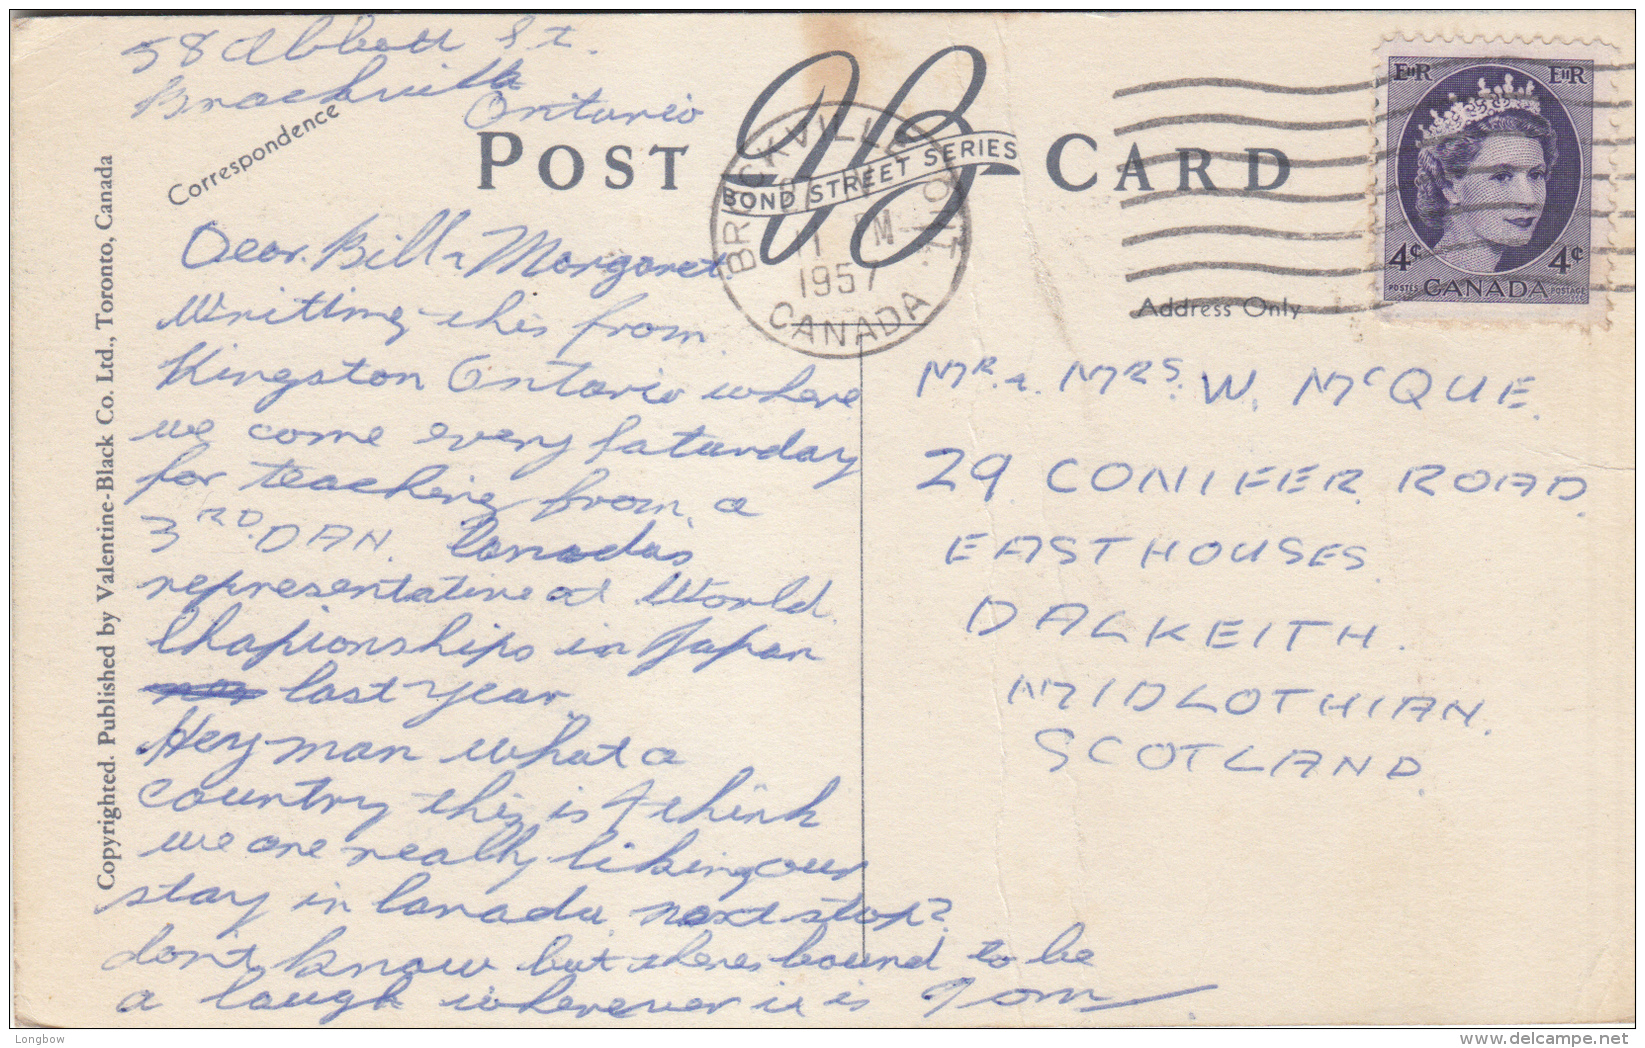 58 Abbott St.
Brockville
Ontario
Correspondence
POST CARD
VB
BOND STREET SERIES
BROCKVILLE ONT.
11 PM
1957
CANADA
EIIR EIIR
4¢ 4¢
POSTES CANADA POSTAGE
Address Only
Copyrighted. Published by Valentine-Black Co. Ltd., Toronto, Canada
Dear Bill & Margaret
Writting this from
Kingston Ontario where
we come every Saturday
for teaching from a
3RD. DAN. Canadas
representative at World
Chapionships in Japan
last year.
Hey man what a
country this is I think
we are really liking our
stay in Canada next stop?
dont know but theres bound to be
a laugh wherever it is Tom
MR. & MRS. W. McQUE.
29 CONIFER ROAD.
EASTHOUSES.
DALKEITH.
MIDLOTHIAN.
SCOTLAND.
Longbow
www.delcampe.net